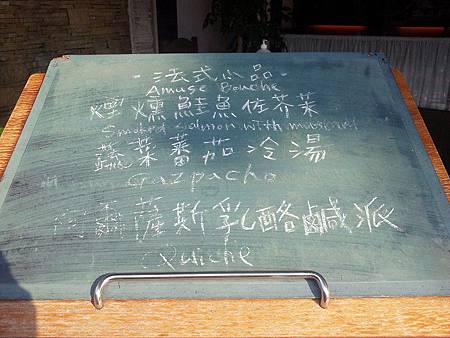 ·法式小品·
Amuse Bouche
煙燻鮭魚佐芥菜
Smoked Salmon with mustard
蔬菜蕃茄冷湯
Gazpacho
薩斯乳酪鹹派
Quiche